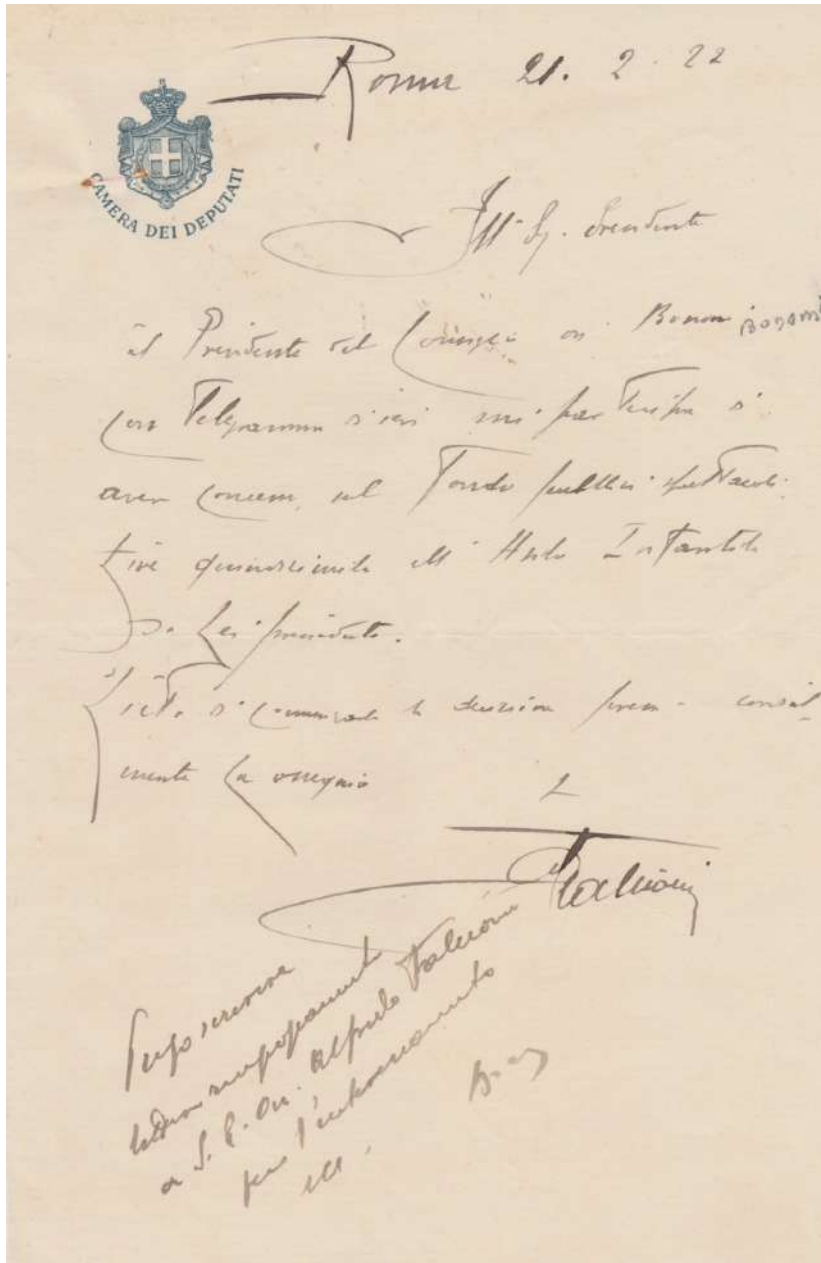 Roma 21. 2. 22
CAMERA DEI DEPUTATI
Ill. Sg. Presidente
il Presidente del Consiglio on. Bonomi Bonomi
con Telegramma d'ieri mi partecipa di
aver concesso, sul Fondo pubblici spettacoli
Lire quindicimila all'Asilo Infantile
da Lei presieduto.
Lieto di comunicarle la decisione
mente La ossequio
Falcioni
Prego scrivere
lettera ringraziamento
a S. E. On. Alfredo Falcioni
per l'interessamento